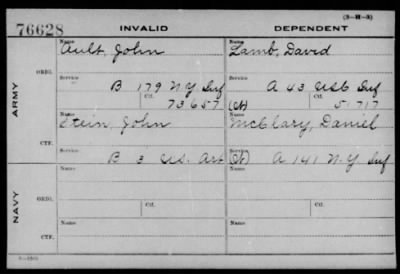 (3-H-3)
76628 INVALID DEPENDENT
Name Name
Ault, John Lamb, David
ARMY
ORIG.
Service Service
B 179 N.Y. Inf A 43 USC Inf
Ctf. 73657 (M) Ctf. 51717
Name Name
Stein, John McClary, Daniel
CTF.
Service Service
B 3 U.S. Art (M) A 141 N.Y. Inf
NAVY
Name Name
ORIG.
Ctf. Ctf.
Name Name
CTF.